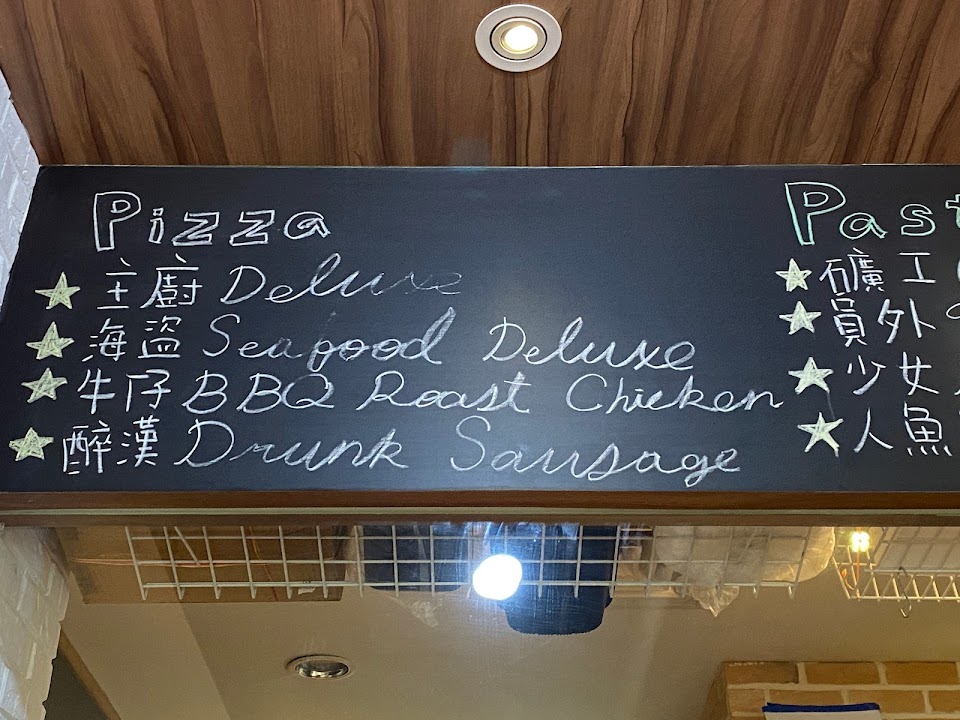 Pizza
主廚 Deluxe
海盜 Seafood Deluxe
牛仔 BBQ Roast Chicken
醉漢 Drunk Sausage
Past
礦工
員外
少女
人魚